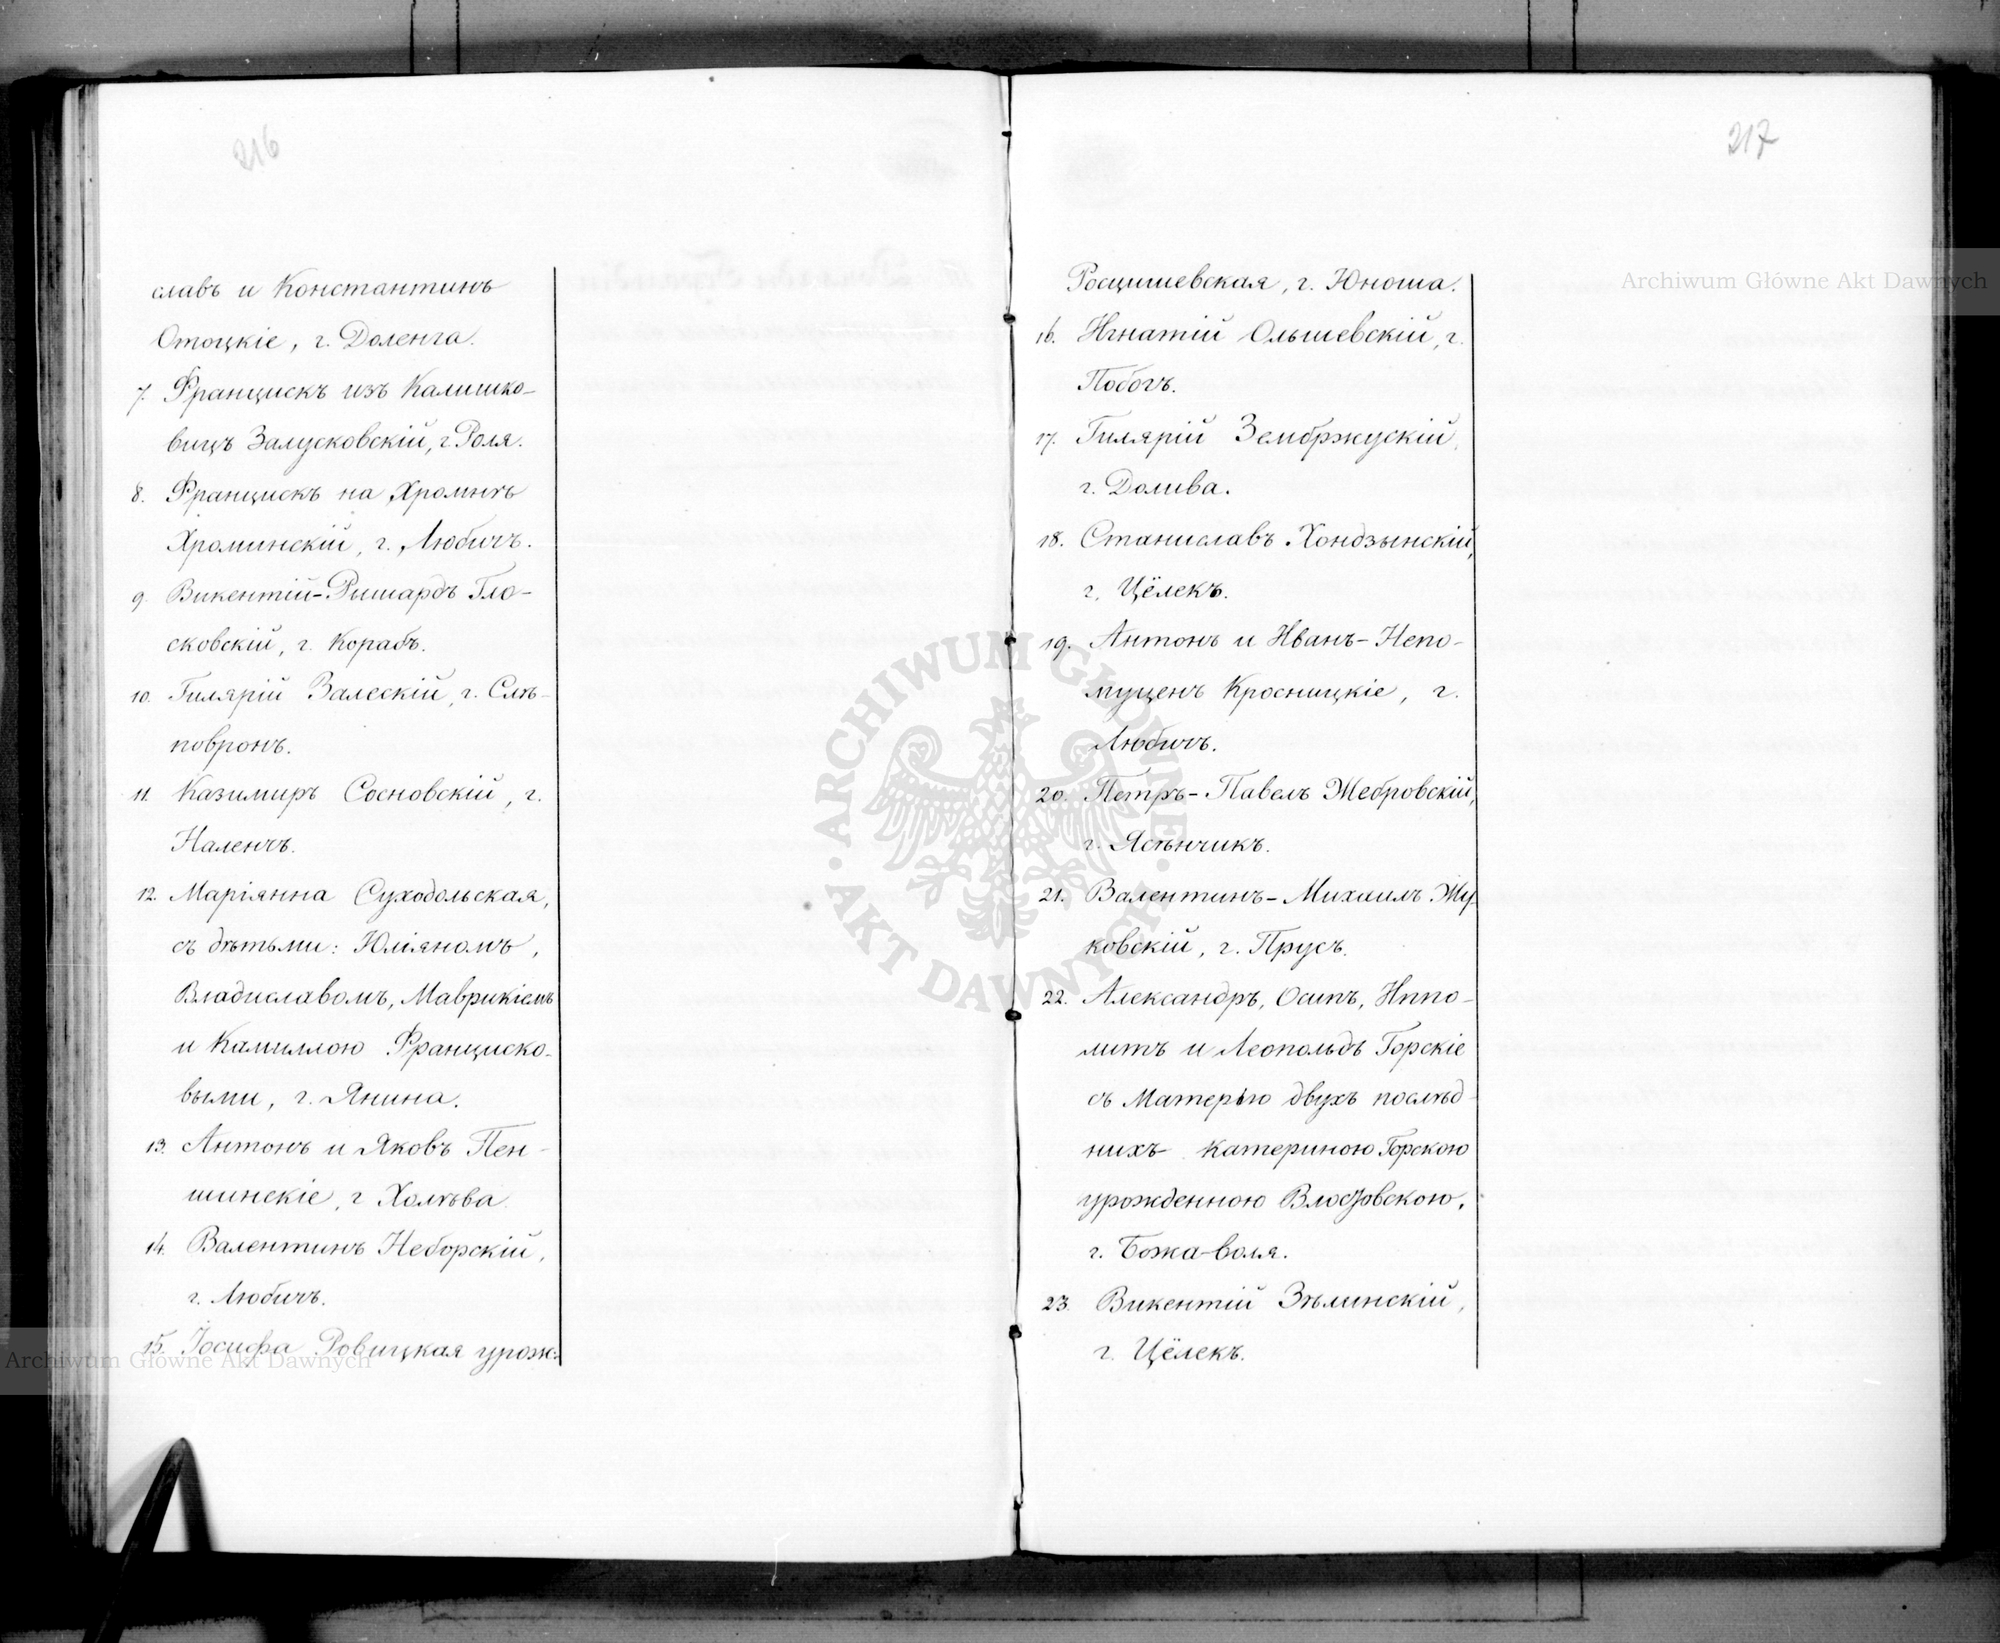 216
славъ и Константинъ
Отоцкіе, г. Доленга.
7. Францискъ изъ Калишко-
вицъ Залусковскій, г. Роля.
8. Францискъ на Хроминѣ
Хроминскій, г. Любичъ.
9. Викентій-Рышардъ Гло-
сковскій, г. Корабъ.
10. Гилярій Залескій, г. Слѣ-
повронъ.
11. Казимиръ Сосновскій, г.
Наленчъ.
12. Маріянна Суходольская,
съ дѣтьми: Юліяномъ,
Владиславомъ, Маврикіемъ
и Камиллою Франциско-
выми, г. Янина.
13. Антонъ и Яковъ Пен-
шинскіе, г Холѣва
14. Валентинъ Неборскій,
г. Любичъ.
15. Іосифа Ровицкая урож.
217
Росцишевская, г. Юноша.
16. Игнатій Ольшевскій, г.
Побогъ.
17. Гилярій Зембржускій,
г. Долива.
18. Станиславъ Хондзынскій,
г. Цёлекъ.
19. Антонъ и Иванъ-Непо-
муценъ Кросницкіе, г.
Любичъ.
20. Петръ-Павелъ Жебровскій,
г. Ясѣнчикъ.
21. Валентинъ-Михаилъ Жу-
ковскій, г. Прусъ.
22. Александръ, Осипъ, Иппо-
литъ и Леопольдъ Горскіе
съ Матерью двухъ послѣд-
нихъ Катериною Горскою
урожденною Влостовскою,
г. Божа-воля.
23. Викентій Зѣлинскій,
г. Цёлекъ.
Archiwum Główne Akt Dawnych
ARCHIWUM GŁÓWNE
AKT DAWNYCH
Archiwum Główne Akt Dawnych